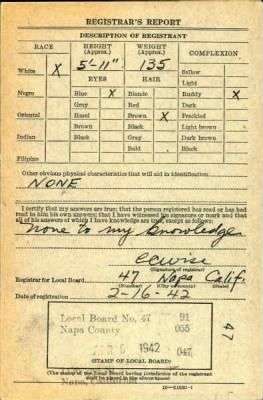 REGISTRAR'S REPORT
DESCRIPTION OF REGISTRANT
RACE HEIGHT (Approx.) WEIGHT (Approx.) COMPLEXION
White X 5'-11" 135 Sallow
EYES HAIR Light
Negro Blue X Blonde Ruddy X
Gray Red Dark
Oriental Hazel Brown X Freckled
Brown Black Light brown
Indian Black Gray Dark brown
Bald Black
Filipino
Other obvious physical characteristics that will aid in identification
NONE
I certify that my answers are true; that the person registered has read or has had
read to him his own answers; that I have witnessed his signature or mark and that
all of his answers of which I have knowledge are true, except as follows:
None to my knowledge
(Signature of registrar)
Registrar for Local Board 47 Napa Calif.
(Number) (City or county) (State)
Date of registration 2-16-42
Local Board No. 47 91
Napa County 055
1942 047
47
(STAMP OF LOCAL BOARD)
(The stamp of the Local Board having jurisdiction of the registrant
shall be placed in the above space)
Napa,